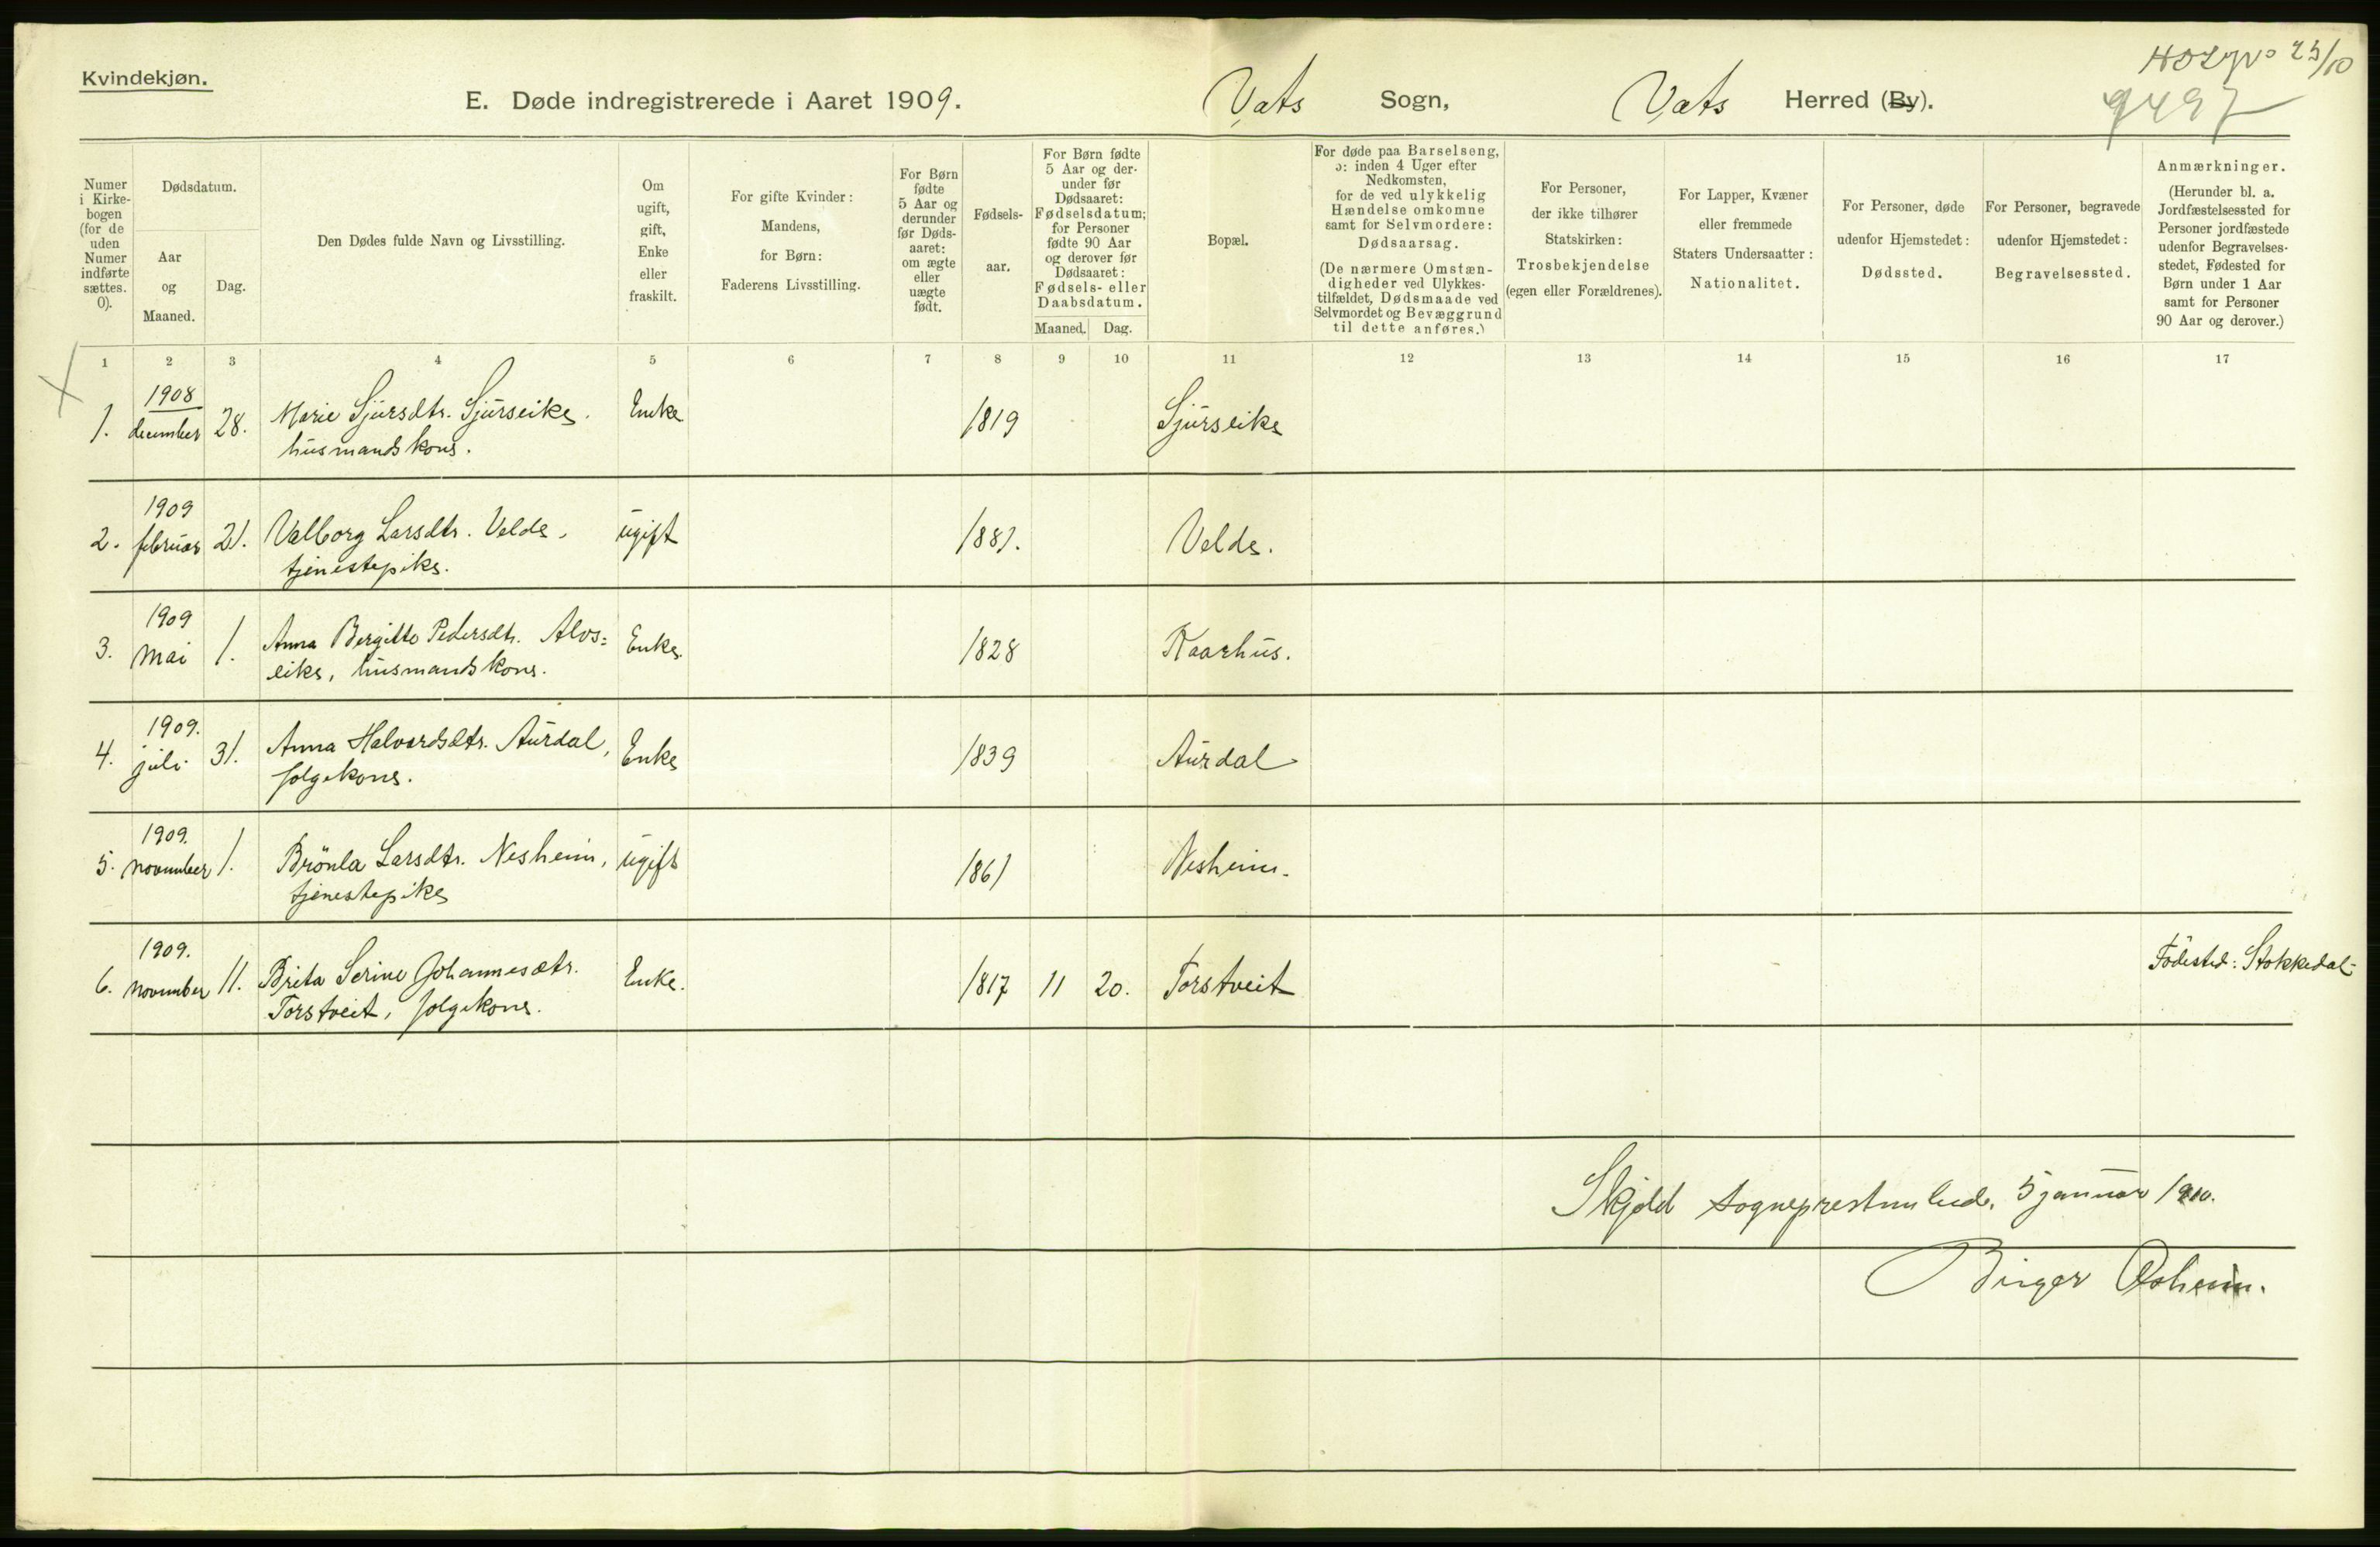 Kvindekjøn.
E. Døde indregistrerede i Aaret 1909. Vats Sogn, Vats Herred (By).
23/10
9497
Numer
i Kirke-
bogen
(for de
uden
Numer
indførte
sættes.
0).
Dødsdatum.
Aar
og
Maaned.
Dag.
Den Dødes fulde Navn og Livsstilling.
Om
ugift,
gift,
Enke
eller
fraskilt.
For gifte Kvinder:
Mandens,
for Børn:
Faderens Livsstilling.
For Børn
fødte
5 Aar og
derunder
før Døds-
aaret:
om ægte
eller
uægte
født.
Fødsels-
aar.
For Børn fødte
5 Aar og der-
under før
Dødsaaret:
Fødselsdatum;
for Personer
fødte 90 Aar
og derover før
Dødsaaret:
Fødsels- eller
Daabsdatum.
Maaned. Dag.
Bopæl.
For døde paa Barselseng,
ɔ: inden 4 Uger efter
Nedkomsten,
for de ved ulykkelig
Hændelse omkomne
samt for Selvmordere:
Dødsaarsag.
(De nærmere Omstæn-
digheder ved Ulykkes-
tilfældet, Dødsmaade ved
Selvmordet og Bevæggrund
til dette anføres.)
For Personer,
der ikke tilhører
Statskirken:
Trosbekjendelse
(egen eller Forældrenes).
For Lapper, Kvæner
eller fremmede
Staters Undersaatter:
Nationalitet.
For Personer, døde
udenfor Hjemstedet:
Dødssted.
For Personer, begravede
udenfor Hjemstedet:
Begravelsessted.
Anmærkninger.
(Herunder bl. a.
Jordfæstelsessted for
Personer jordfæstede
udenfor Begravelses-
stedet, Fødested for
Børn under 1 Aar
samt for Personer
90 Aar og derover.)
1 2 3 4 5 6 7 8 9 10 11 12 13 14 15 16 17
1908
1. december 28. Marie Sjursdtr. Sjurseike. Enke 1819 Sjurseike
husmandskone.
1909
2. februar 21. Valborg Larsdtr. Velde, ugift 1881. Velde.
tjenestepike.
1909
3. mai 1. Anna Bergitte Pedersdtr. Alvs= Enke. 1828 Kaarhus.
eike, husmandskone.
1909.
4. juli 31. Anna Halvardsdtr. Aurdal, Enke 1839 Aurdal
folgekone.
1909.
5. november 1. Brönla Larsdtr. Nesheim, ugift 1861 Nesheim.
tjenestepike
1909.
6. november 11. Brita Serine Johannesdtr. Enke. 1817 11 20. Torstveit Födested: Stokkedal
Torstveit, folgekone.
Skjold sogneprestembede, 5 januar 1910.
Birger Osheim.